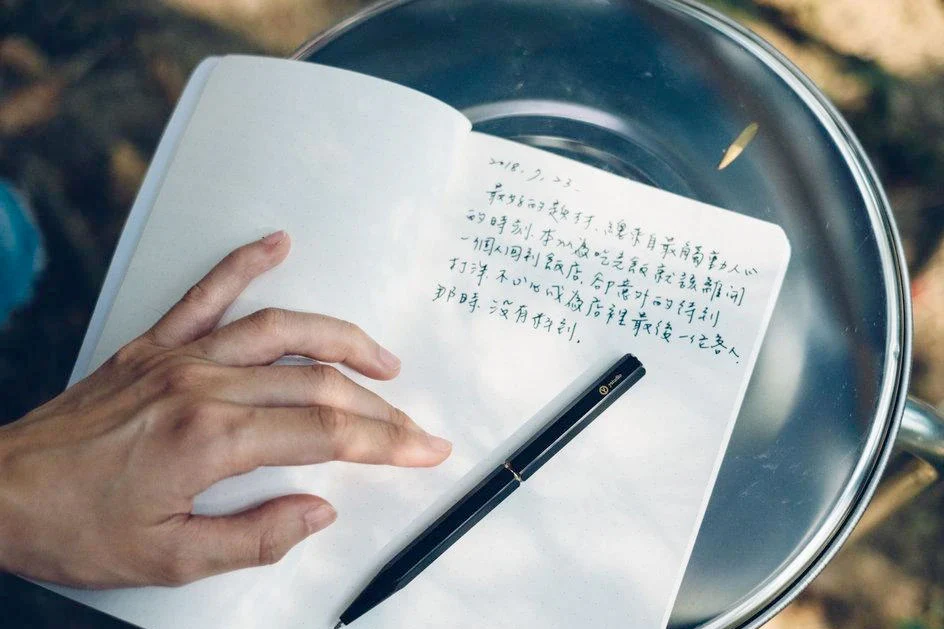 2018.9.23.
最好的題材、總來自最觸動人心
的時刻.本以為吃完飯就該離開
一個人回到飯店.卻意外的待到
打烊 不小心成為店裡最後一位客人.
那時.沒有料到.
ystudio